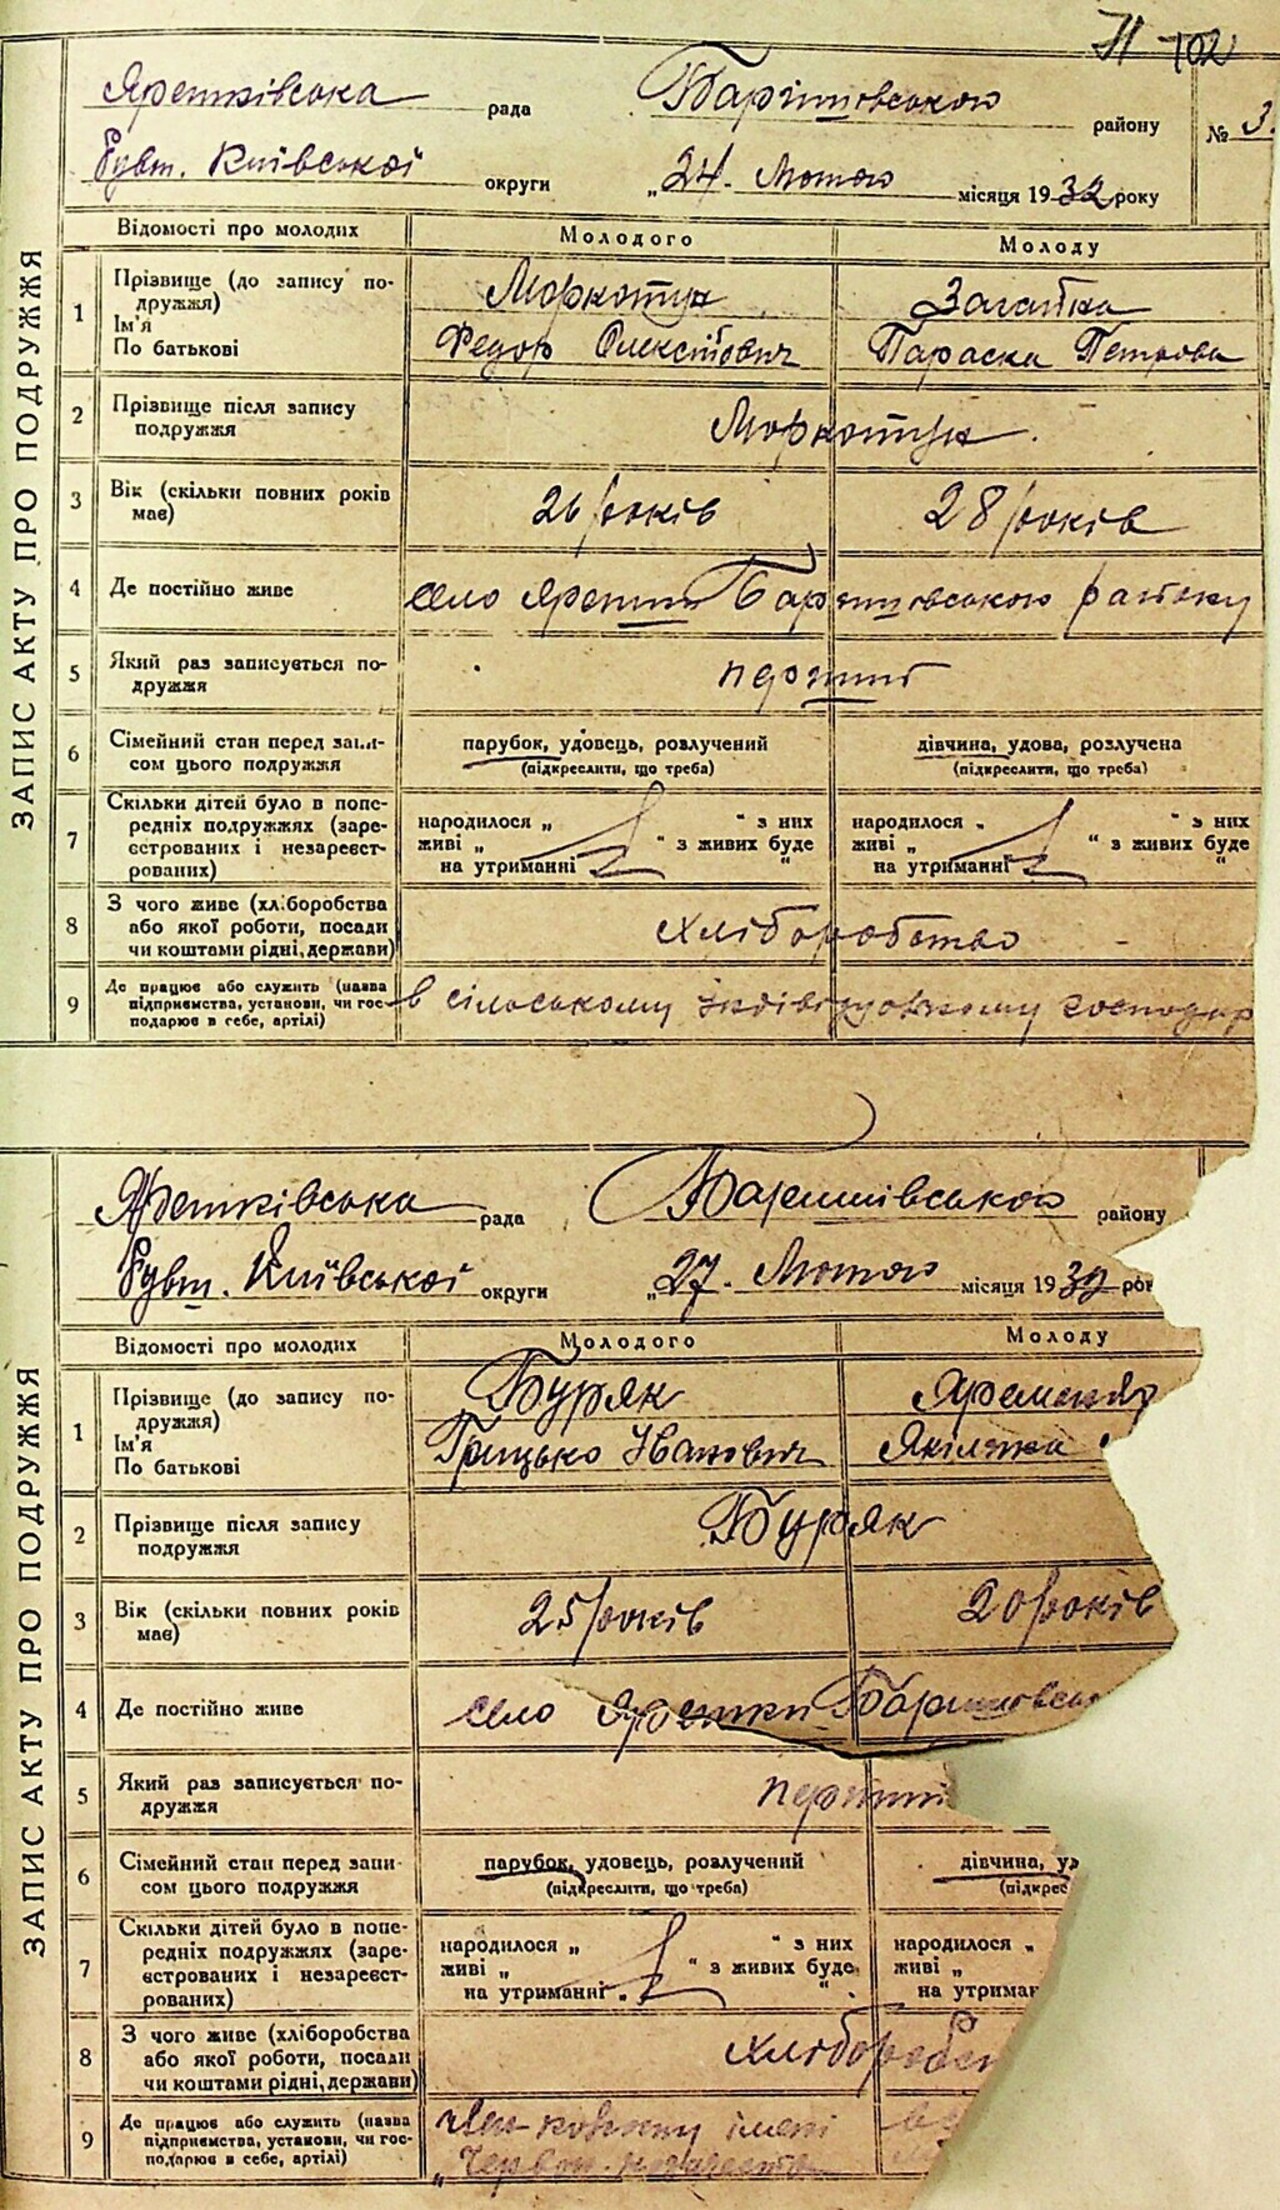 71 102
Ярешківська рада Баришівського району № 3
Київської округи „24. Лютого місяця 1932 року
ЗАПИС АКТУ ПРО ПОДРУЖЖЯ
Відомості про молодих Молодого Молоду
1 Прізвище (до запису по-
дружжя) Загайка
Ім'я
По батькові Федор Олексійович Параска Петрова
2 Прізвище після запису
подружжя
3 Вік (скільки повних років
має) 26 років 28 років
4 Де постійно живе село Ярешки Баришівського району
5 Який раз записується по-
дружжя перший
6 Сімейний стан перед запи-
сом цього подружжя
парубок, удовець, розлучений дівчина, удова, розлучена
(підкреслити, що треба) (підкреслити, що треба)
7 Скільки дітей було в попе-
редніх подружжях (заре-
єстрованих і незареєст-
рованих)
народилося „ “ з них народилося „ “ з них
живі „ “ з живих буде живі „ “ з живих буде
на утриманні “ на утриманні “
8 З чого живе (хліборобства
або якої роботи, посади
чи коштами рідні, держави)
хліборобство
9 Де працює або служить (назва
підприємства, установи, чи гос-
подарює в себе, артілі)
в сільському індівідуальному господар
Ярешківська рада Баришівського району
Київської округи „27. Лютого місяця 1932 рок
ЗАПИС АКТУ ПРО ПОДРУЖЖЯ
Відомості про молодих Молодого Молоду
1 Прізвище (до запису по-
дружжя) Буряк
Ім'я
По батькові Грицько Іванович Якілина
2 Прізвище після запису
подружжя Буряк
3 Вік (скільки повних років
має) 25 років 20 років
4 Де постійно живе село Ярешки Баришівсько
5 Який раз записується по-
дружжя перший
6 Сімейний стан перед запи-
сом цього подружжя
парубок, удовець, розлучений дівчина, уд
(підкреслити, що треба) (підкрес
7 Скільки дітей було в попе-
редніх подружжях (заре-
єстрованих і незареєст-
рованих)
народилося „ “ з них народилося „
живі „ “ з живих буде живі „
на утриманні „ “ на утриман
8 З чого живе (хліборобства
або якої роботи, посади
чи коштами рідні, держави)
хліборобст
9 Де працює або служить (назва
підприємства, установи, чи гос-
подарює в себе, артілі)
імені